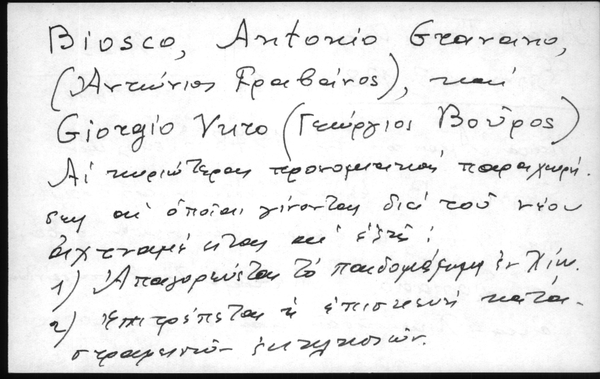 Biosco, Antonio Gravano,
(Ἀντώνιος Γραβᾶνος), καὶ
Giorgio Vuro (Γεώργιος Βοῦρος)
Αἱ κυριώτεραι προνομιακαὶ παραχωρή-
σεις αἱ ὁποῖαι γίνονται διὰ τοῦ νέου
ἀχτιναμὲ εἶναι αἱ ἑξῆς:
1) Ἀπαγορεύεται τὸ παιδομάζωμα ἐν Χίῳ.
2) Ἐπιτρέπεται ἡ ἐπισκευὴ κατε-
στραμμένων ἐκκλησιῶν.